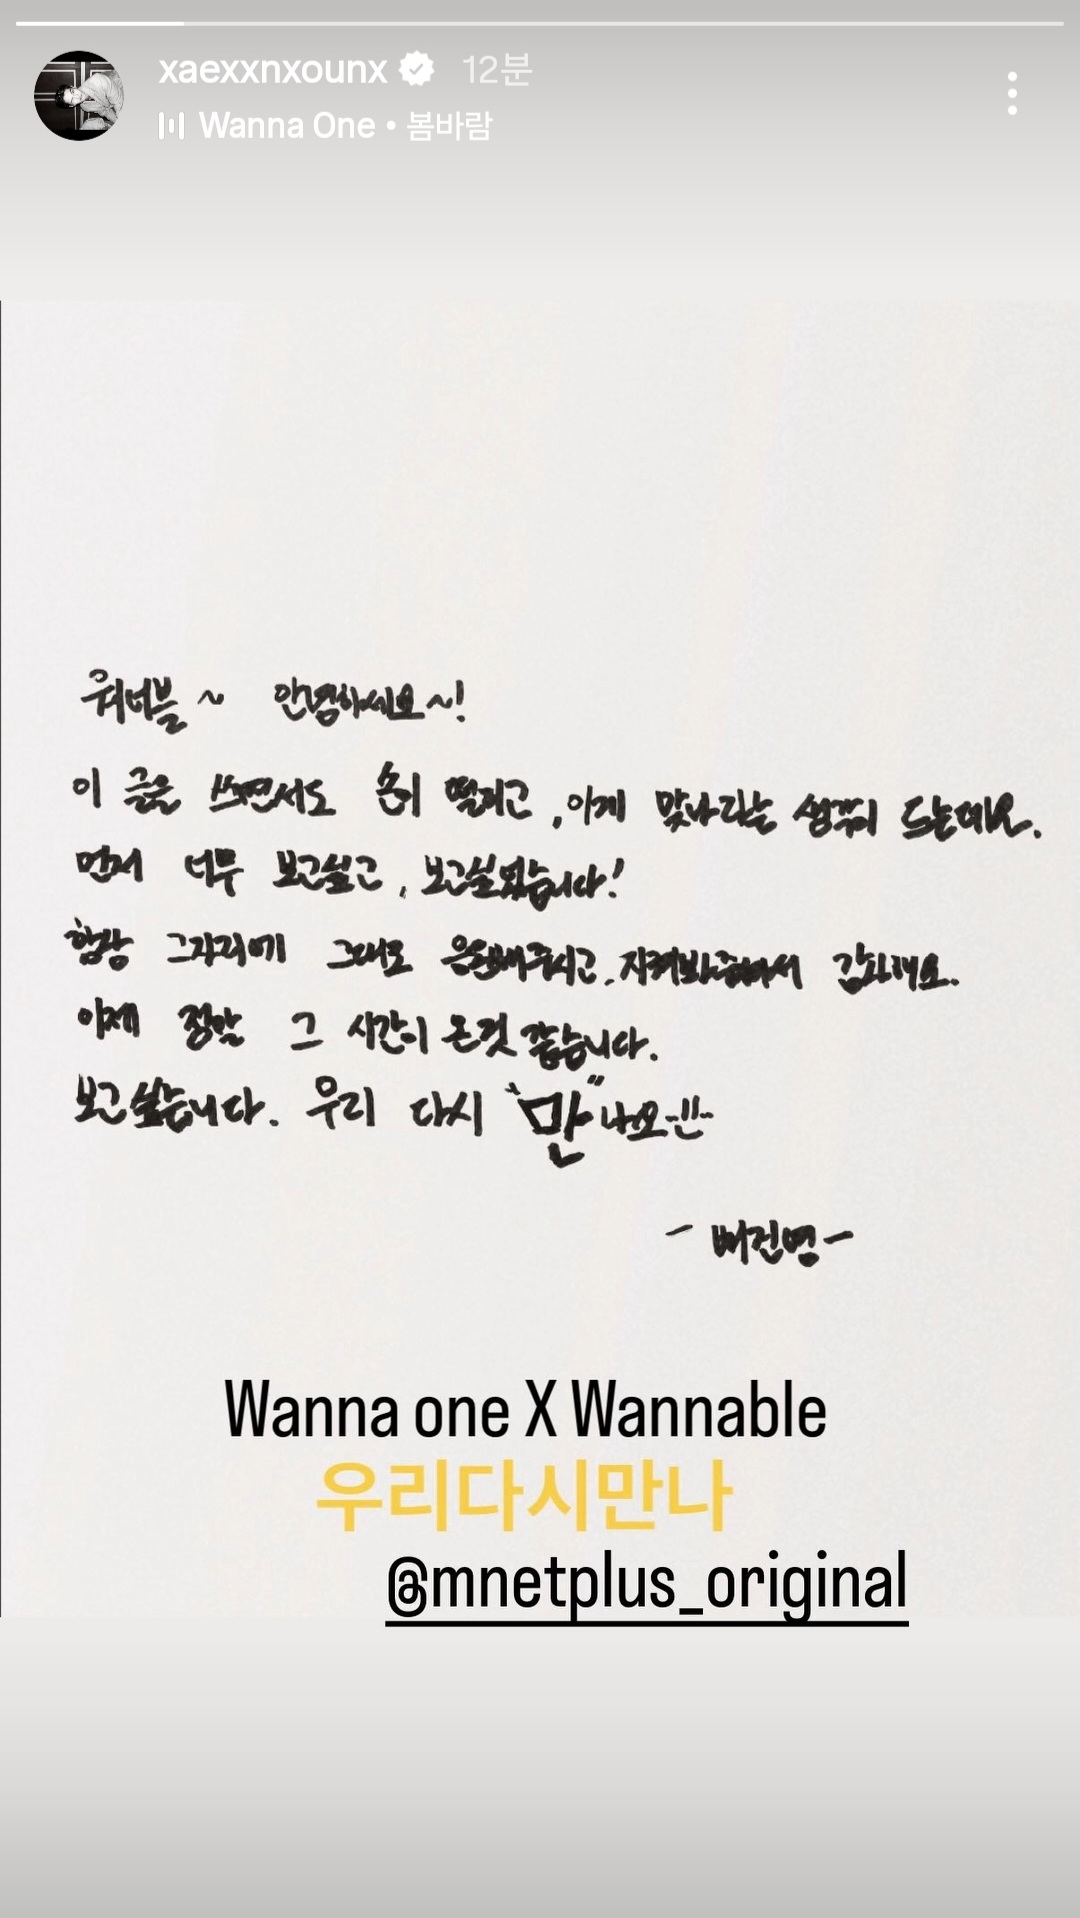 xaexxnxounx 12분
Wanna One • 봄바람
워너블~ 안녕하세요~!
이 글을 쓰면서도 손이 떨리고, 이게 맞나라는 생각이 드는데요.
먼저 너무 보고싶고, 보고싶었습니다!
항상 그자리에 그대로 응원해주시고, 지켜봐주셔서 감사해요.
이제 정말 그 시간이 온것 같습니다.
보고싶습니다. 우리 다시 "만"나요-!!-
- 배진영 -
Wanna one X Wannable
우리다시만나
@mnetplus_original